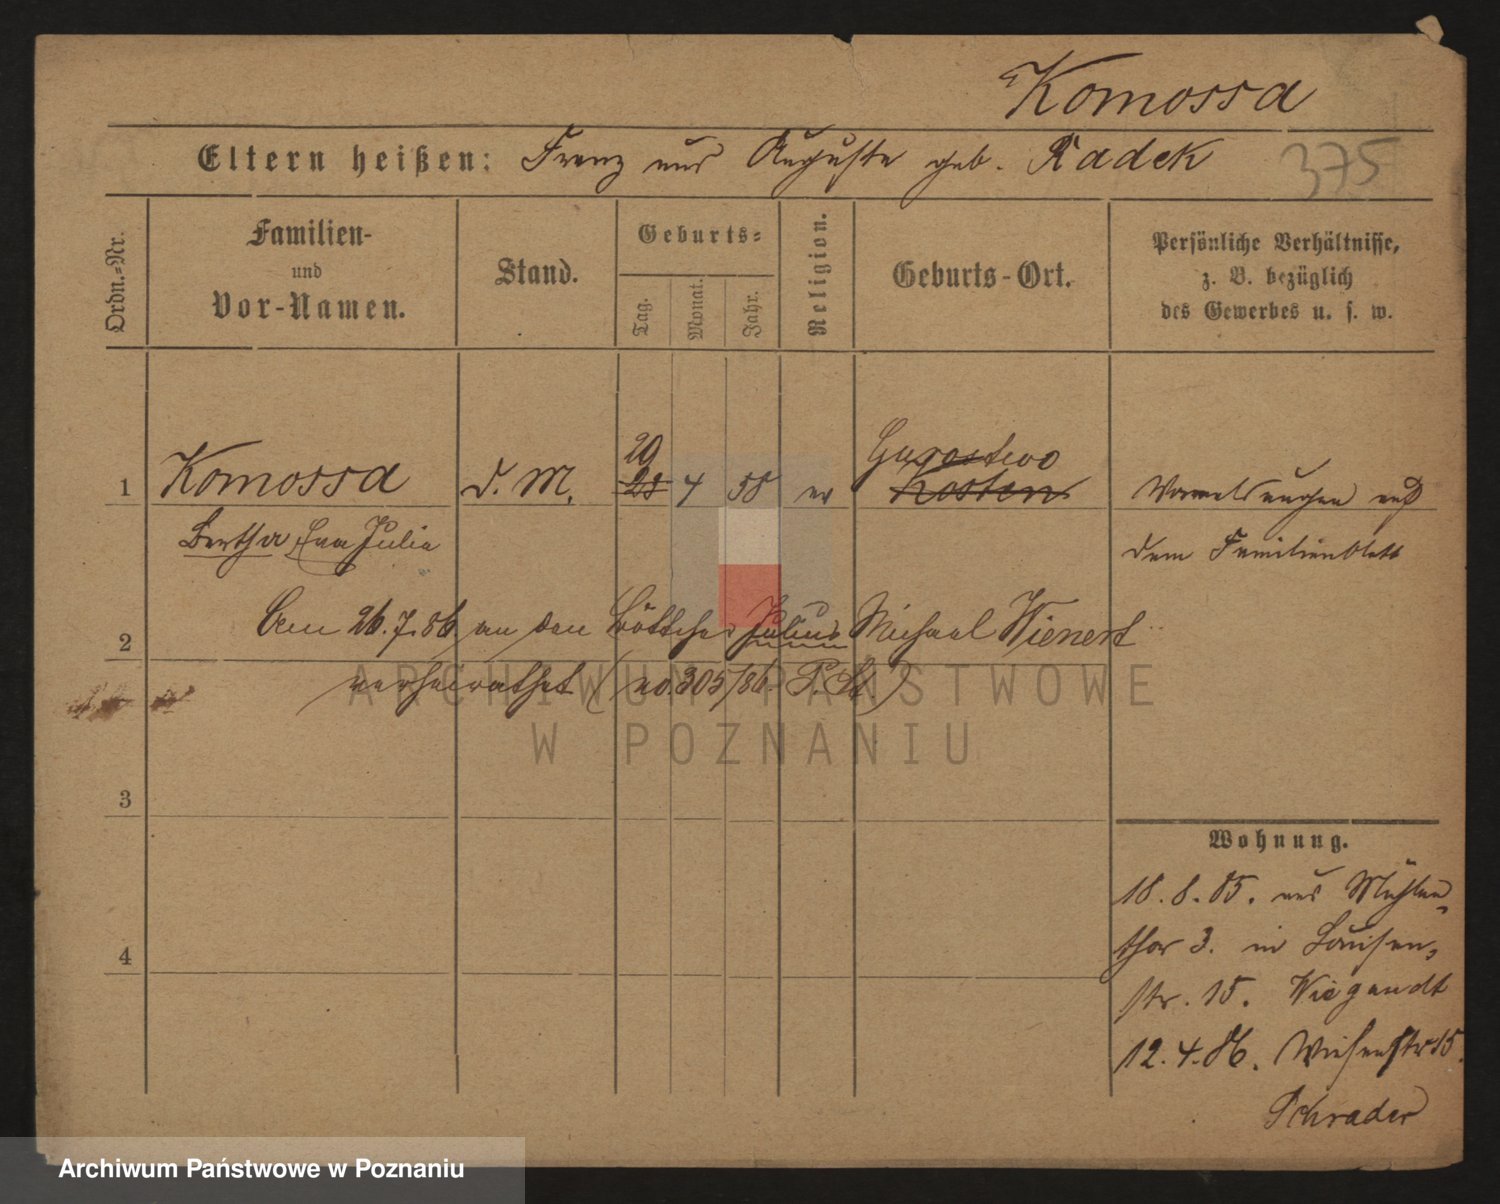 Komossa
Eltern heißen: Franz und Auguste geb. Radek
375
Ordn.=Nr.
Familien-
und
Vor-Namen.
Stand.
Geburts=
Tag.
Monat.
Jahr.
Religion.
Geburts-Ort.
Persönliche Verhältnisse,
z. B. bezüglich
des Gewerbes u. s. w.
20
1 Komossa d. M. 28 4 58 ev Kosten
Bertha Eva Julie
dem Familienblatt
2 Am 26.7.86 an den Böttcher Julius Michael Wienert
verheirathet (no. 305/86. P. St)
ARCHIWUM PAŃSTWOWE
W POZNANIU
3
4
Wohnung.
18.8.85. aus Mühlen-
thor 3. in Louisen-
str. 15. Wiegandt
12.4.86. Wiesenstr 15.
Schrader
Archiwum Państwowe w Poznaniu